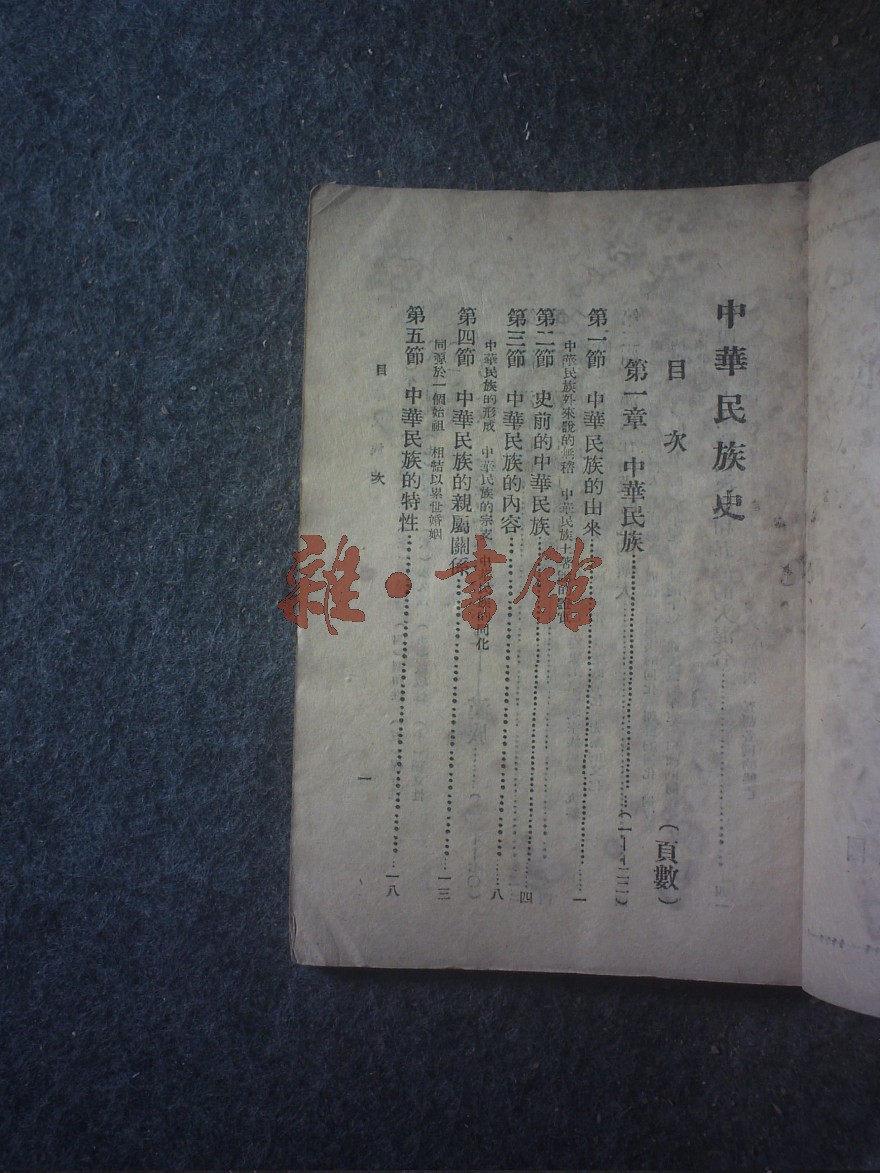 中華民族史
目次
(頁數)
第一章 中華民族……(一—二二)
第一節 中華民族的由來……一
中華民族外來說的無稽 中華民族土著
第二節 史前的中華民族……四
第三節 中華民族的內容……八
中華民族的形成 中華民族的宗支 同化
第四節 中華民族的親屬關係……一三
同源於一個始祖 相結以累世婚姻
第五節 中華民族的特性……一八
目次
一
雜·書館